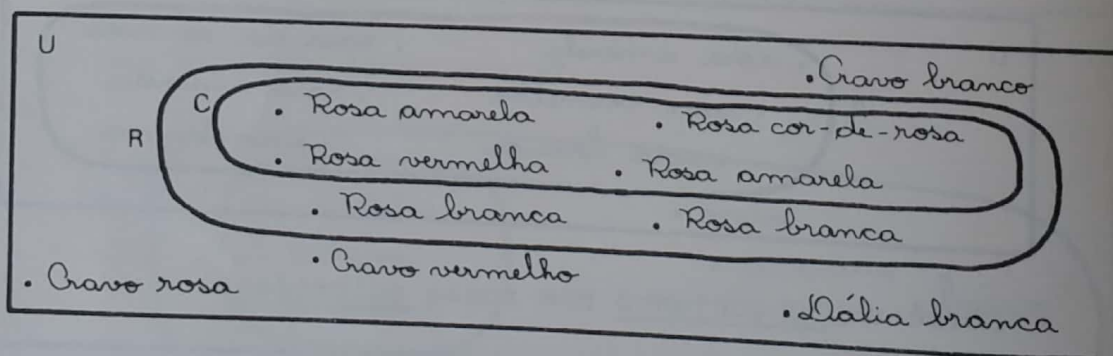 U
. Cravo branco
C
. Rosa amarela . Rosa cor-de-rosa
R
. Rosa vermelha . Rosa amarela
. Rosa branca . Rosa branca
. Cravo vermelho
. Cravo rosa
. Dália branca